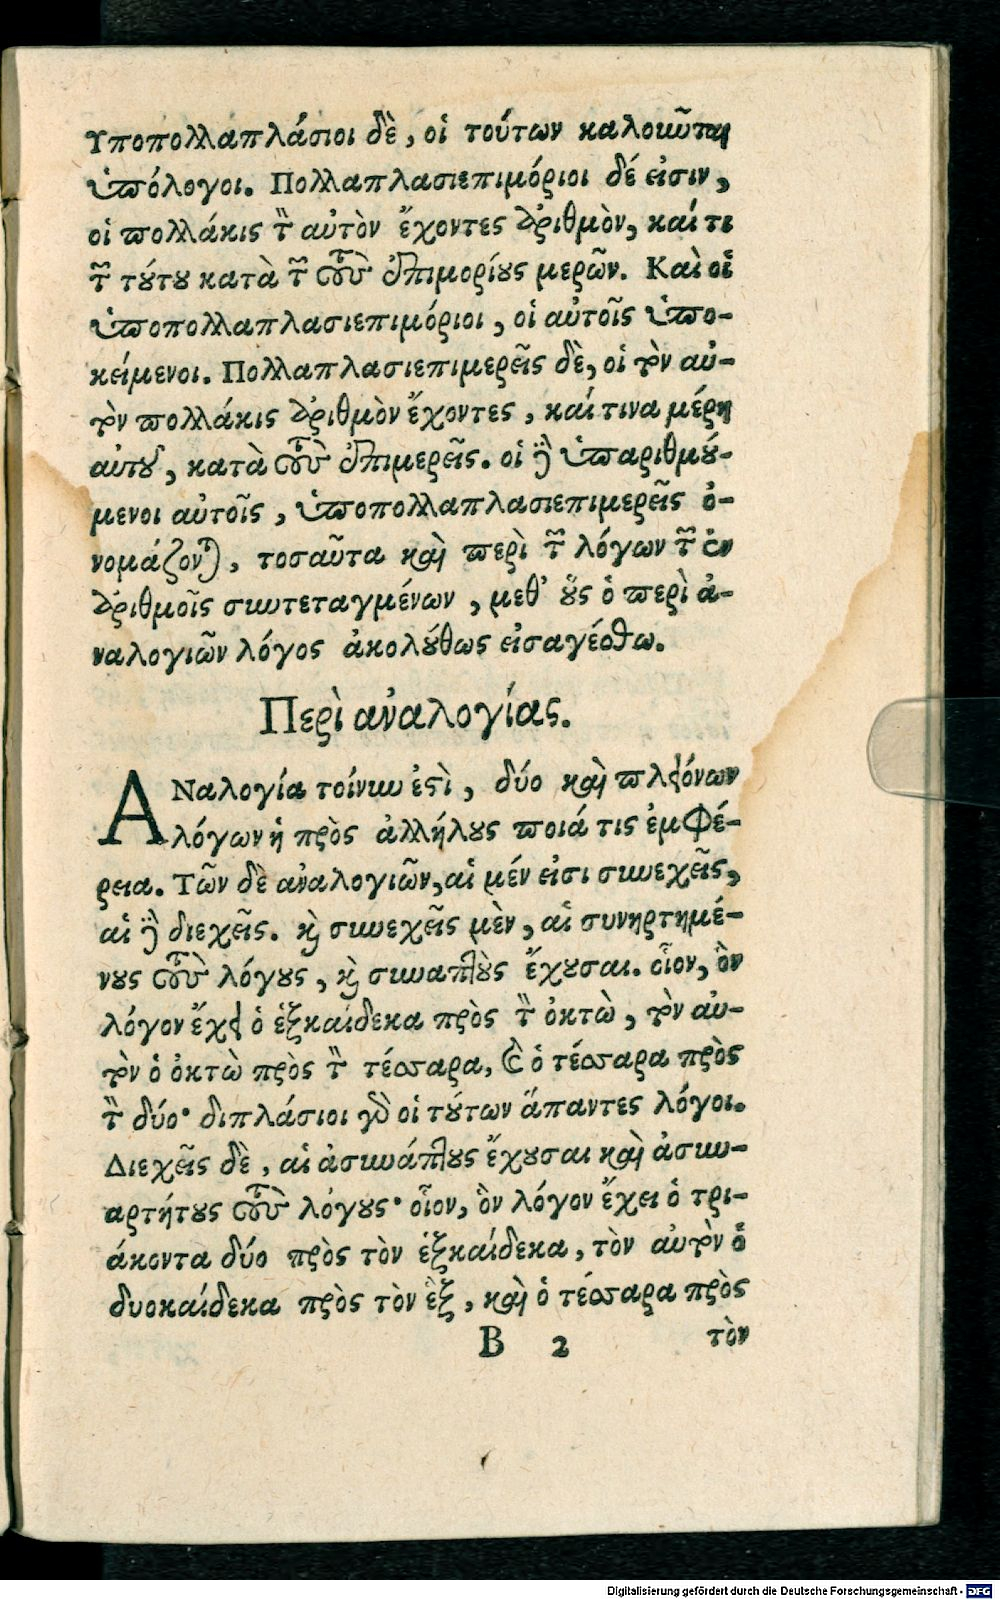 Υποπολλαπλάσιοι δὲ, οἱ τούτων καλοιῶται
ὑπόλογοι. Πολλαπλασιεπιμόριοι δέ εἰσιν,
οἱ πολλάκις τὸν αὐτὸν ἔχοντες ἀριθμὸν, καί τι
τῶν τούτου κατὰ τῶν τοὺς ἐπιμορίους μερῶν. Καὶ οἱ
ὑποπολλαπλασιεπιμόριοι, οἱ αὐτοῖς ὑπο-
κείμενοι. Πολλαπλασιεπιμερεῖς δὲ, οἱ τὸν αὐ-
τὸν πολλάκις ἀριθμὸν ἔχοντες, καί τινα μέρη
αὐτοῦ, κατὰ τοὺς ἐπιμερεῖς. οἱ δὲ ὑπαριθμού-
μενοι αὐτοῖς, ὑποπολλαπλασιεπιμερεῖς ὀ-
νομάζονται, τοσαῦτα καὶ περὶ τῶν λόγων τῶν ἐν
ἀριθμοῖς συντεταγμένων, μεθ' οὓς ὁ περὶ ἀ-
ναλογιῶν λόγος ἀκολούθως εἰσαγέσθω.
Περὶ ἀναλογίας.
ΑΝαλογία τοίνυν ἐστὶ, δύο καὶ πλειόνων
λόγων ἡ πρὸς ἀλλήλους ποιά τις ἐμφέ-
ρεια. Τῶν δὲ ἀναλογιῶν, αἱ μέν εἰσι συνεχεῖς,
αἱ δὲ διεχεῖς. καὶ συνεχεῖς μὲν, αἱ συνηρτημέ-
νους τοὺς λόγους, καὶ συναπτοὺς ἔχουσαι. οἷον, ὃν
λόγον ἔχει ὁ ἑξκαίδεκα πρὸς τὸν ὀκτὼ, τὸν αὐ-
τὸν ὁ ὀκτὼ πρὸς τὸν τέσσαρα, καὶ ὁ τέσσαρα πρὸς
τὸν δύο· διπλάσιοι γὰρ οἱ τούτων ἅπαντες λόγοι.
Διεχεῖς δὲ, αἱ ἀσυνάπτους ἔχουσαι καὶ ἀσυν-
αρτήτους τοὺς λόγους· οἷον, ὃν λόγον ἔχει ὁ τρι-
άκοντα δύο πρὸς τὸν ἑξκαίδεκα, τὸν αὐτὸν ὁ
δυοκαίδεκα πρὸς τὸν ἓξ, καὶ ὁ τέσσαρα πρὸς
B 2 τὸν
Digitalisierung gefördert durch die Deutsche Forschungsgemeinschaft - DFG